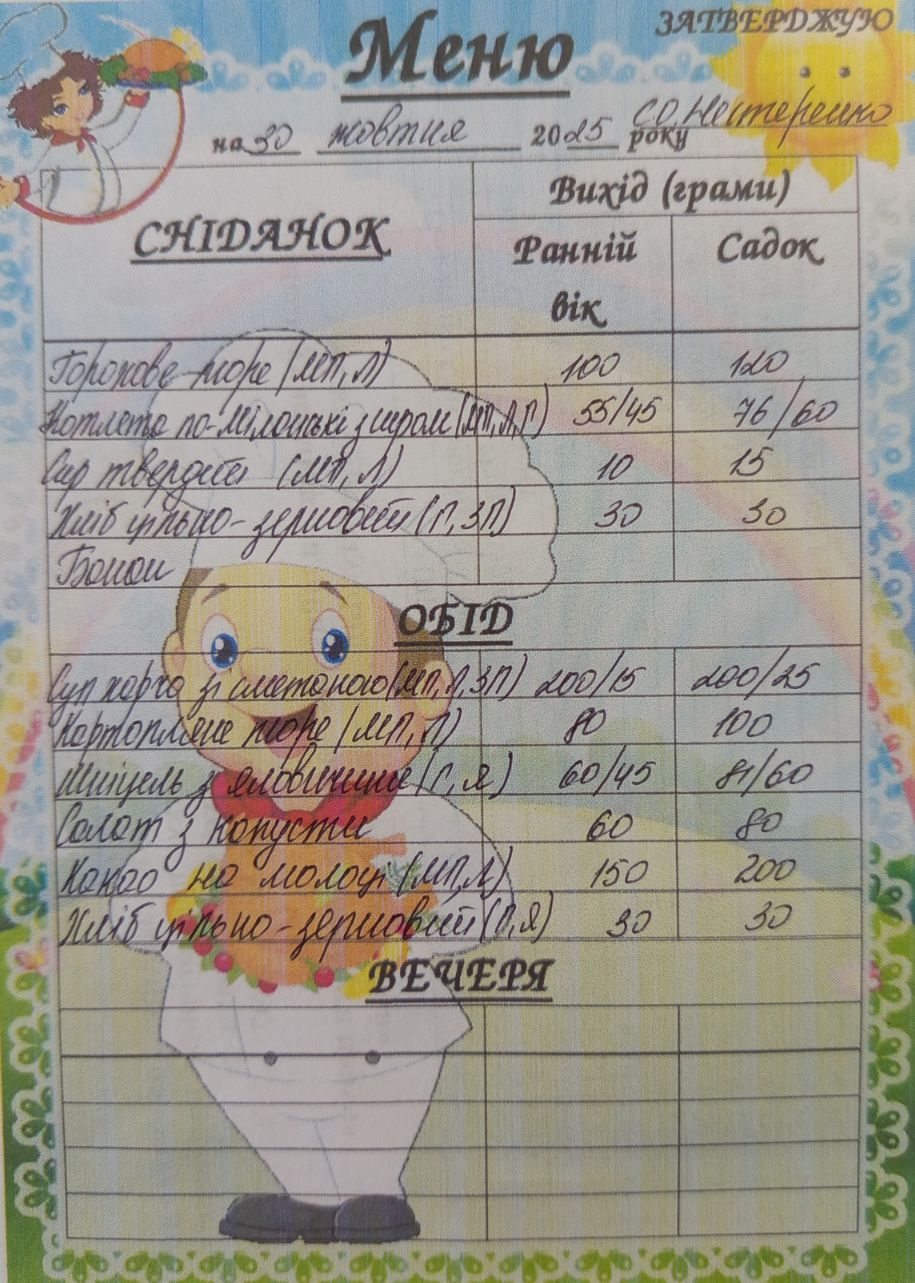 ЗАТВЕРДЖУЮ
Меню
С.О. Нестеренко
на 30 жовтня 2025 року
СНІДАНОК Вихід (грами)
Ранній вік Садок
Горохове пюре (МП, Л) 100 120
Котлета по-мілонські з сиром (МП, Л, Г) 55/45 76/60
Сир твердий (МП, Л) 10 15
Хліб цільно-зерновий (Г, ЗП) 30 30
Банан
ОБІД
Суп харчо зі сметаною (МП, Л, ЗП) 200/15 200/25
Картопляне пюре (МП, Л) 80 100
Шніцель з яловичини (Г, Я) 60/45 81/60
Салат з капусти 60 80
Какао на молоці (МП, Л) 150 200
Хліб цільно-зерновий (Г, Я) 30 30
ВЕЧЕРЯ